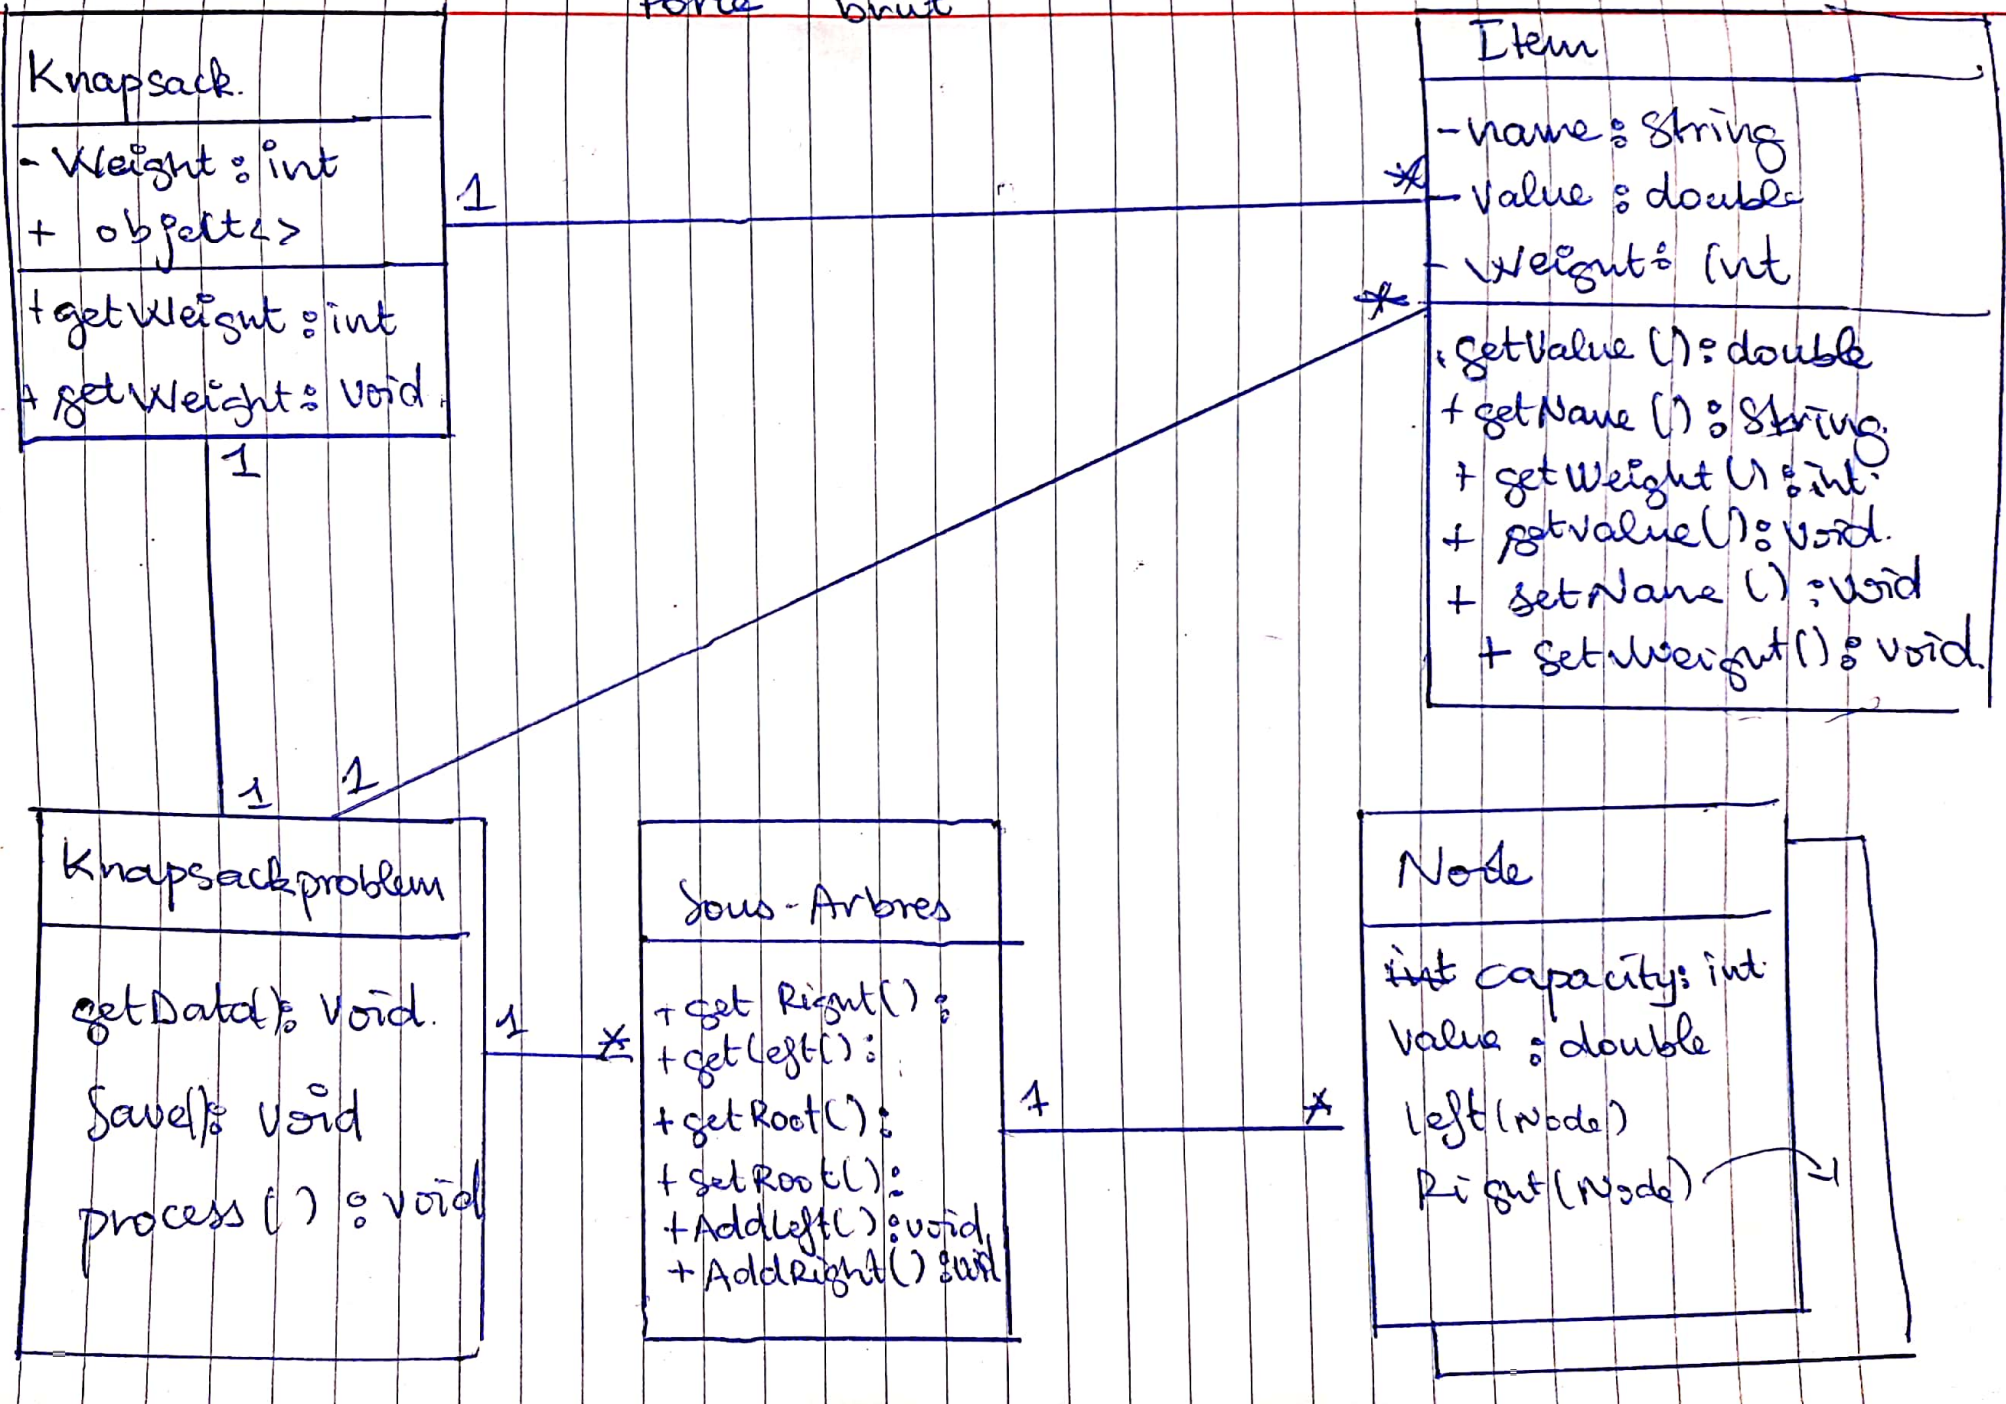 brut
Knapsack.
- Weight : int
+ object<>
+ getWeight : int
+ setWeight : void.
1
*
Item
- name : String
- Value : double
- Weight : int
*
. getValue () : double
+ getName () : String.
+ getWeight () : int.
+ setValue () : void.
+ setName () : void
+ setWeight () : void.
1
1
1
Knapsackproblem
getData() : void.
Save() : void
process () : void
1
*
Sous-Arbres
+ get Right() :
+ getLeft() :
+ getRoot() :
+ setRoot() :
+ AddLeft() : void
+ AddRight() :
1
*
Node
int capacity : int.
Value : double
left (Node)
Right (Node)